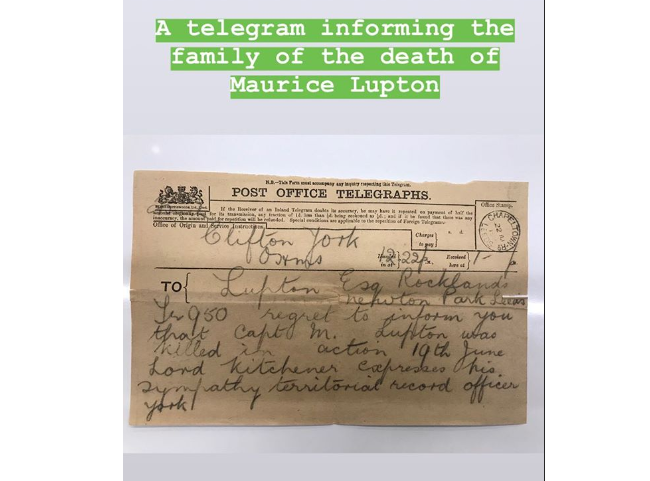 A telegram informing the
family of the death of
Maurice Lupton
N.B.—This Form must accompany any inquiry respecting this Telegram.
POST OFFICE TELEGRAPHS.
If the Receiver of an Inland Telegram doubts its accuracy, he may have it repeated on payment of half the
for its transmission, any fraction of 1d. less than ½d. being reckoned as ½d.; and if it be found that there was any
inaccuracy, the amount paid for repetition will be refunded. Special conditions are applicable to the repetition of Foreign Telegrams.
Office of Origin and Service Instructions.
Office Stamp.
CHAPELTOWN
Clifton York
OHMS
Charges
to pay
s. d.
Handed
in at
Received
here at
TO
Lupton Esq Rocklands
Newton Park Leeds
950 regret to inform you
that Capt M. Lupton was
killed in action 19th June
Lord Kitchener expresses his
sympathy territorial record officer
York